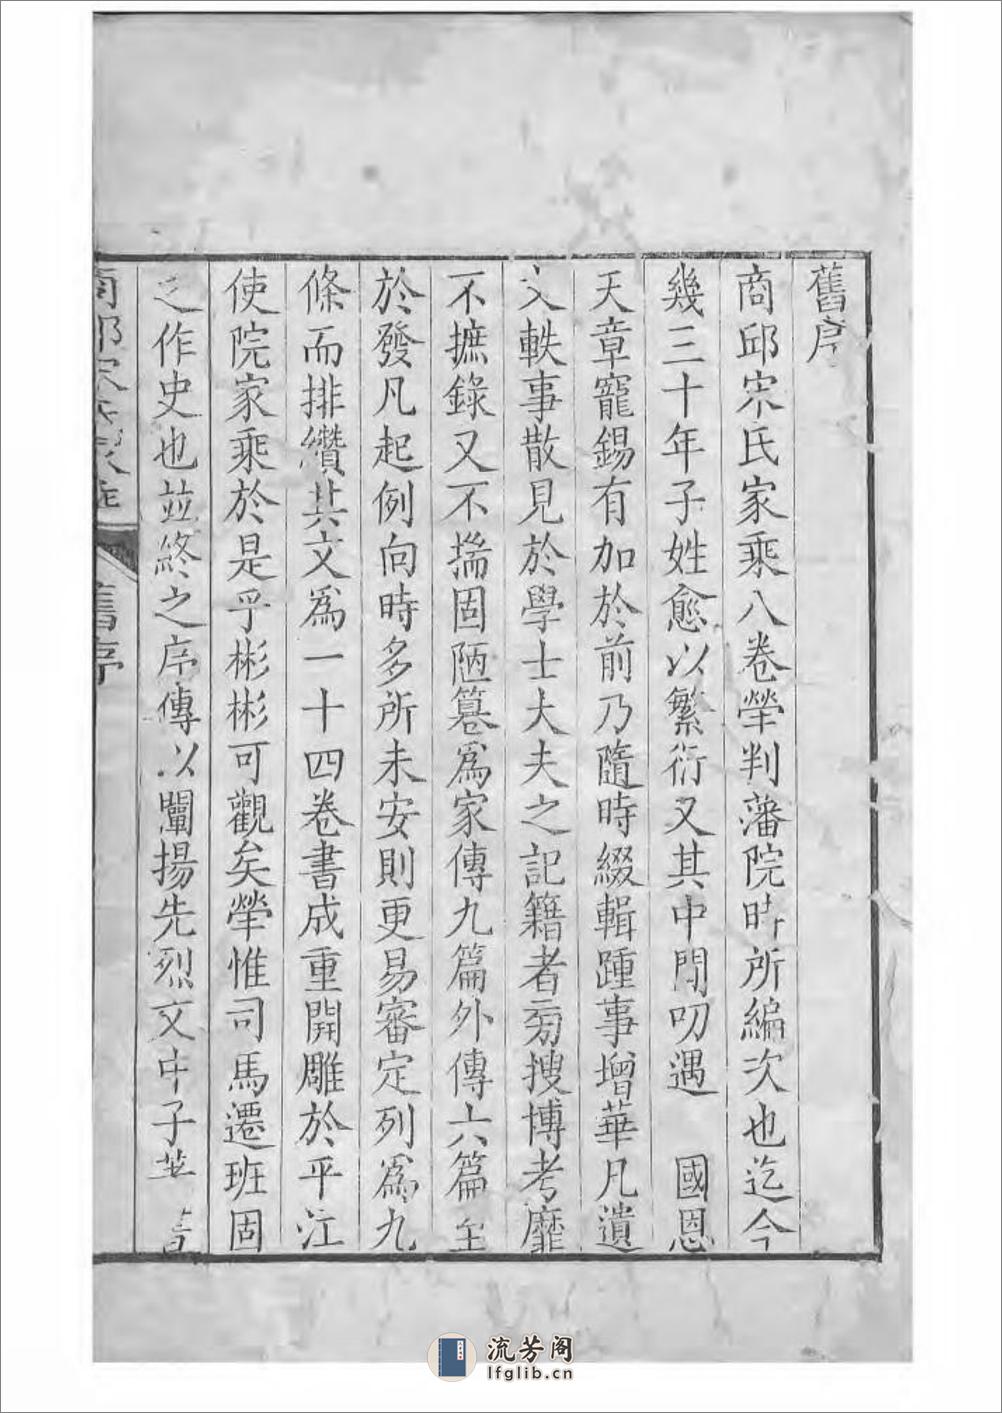 舊序
商邱宋氏家乘八卷犖判藩院時所編次也迄今
幾三十年子姓愈以繁衍又其中間叨遇　國恩
天章寵錫有加於前乃隨時綴輯踵事增華凡遺
文軼事散見於學士大夫之記籍者旁搜博考靡
不摭錄又不揣固陋篹爲家傳九篇外傳六篇至
於發凡起例向時多所未安則更易審定列爲九
條而排纘其文爲一十四卷書成重開雕於平江
使院家乘於是乎彬彬可觀矣犖惟司馬遷班固
之作史也並終之序傳以闡揚先烈文中子
商邱宋氏家乘
舊序
流芳阁
lfglib.cn